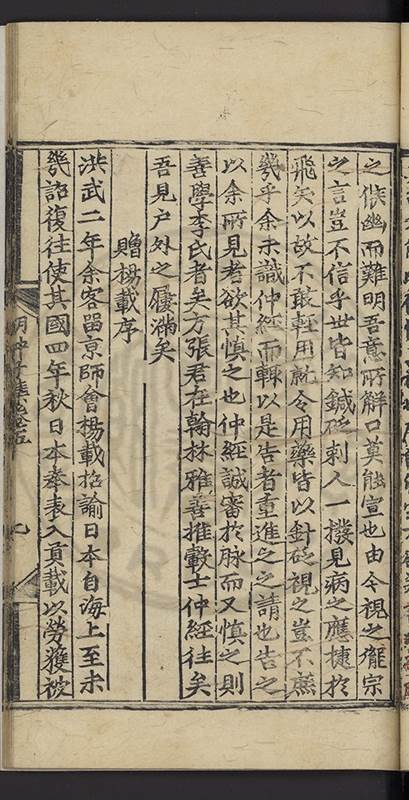 之候幽而難明吾意所解口莫能宣也由今視之龐宗
之言豈不信乎世皆知鍼砭刺人一撥見病之應捷於
飛矢以故不敢輕用就令用藥皆以針砭視之豈不庶
幾乎余未識仲經而輒以是告者重進之之請也告之
以余所見者欲其慎之也仲經誠審於脉而又慎之則
善學李氏者矣方張君在翰林雅善推轂士仲經往矣
吾見户外之屨滿矣
贈楊載序
洪武二年余客留京師會楊載招諭日本自海上至未
幾詔復往使其國四年秋日本奉表入貢載以勞獲被